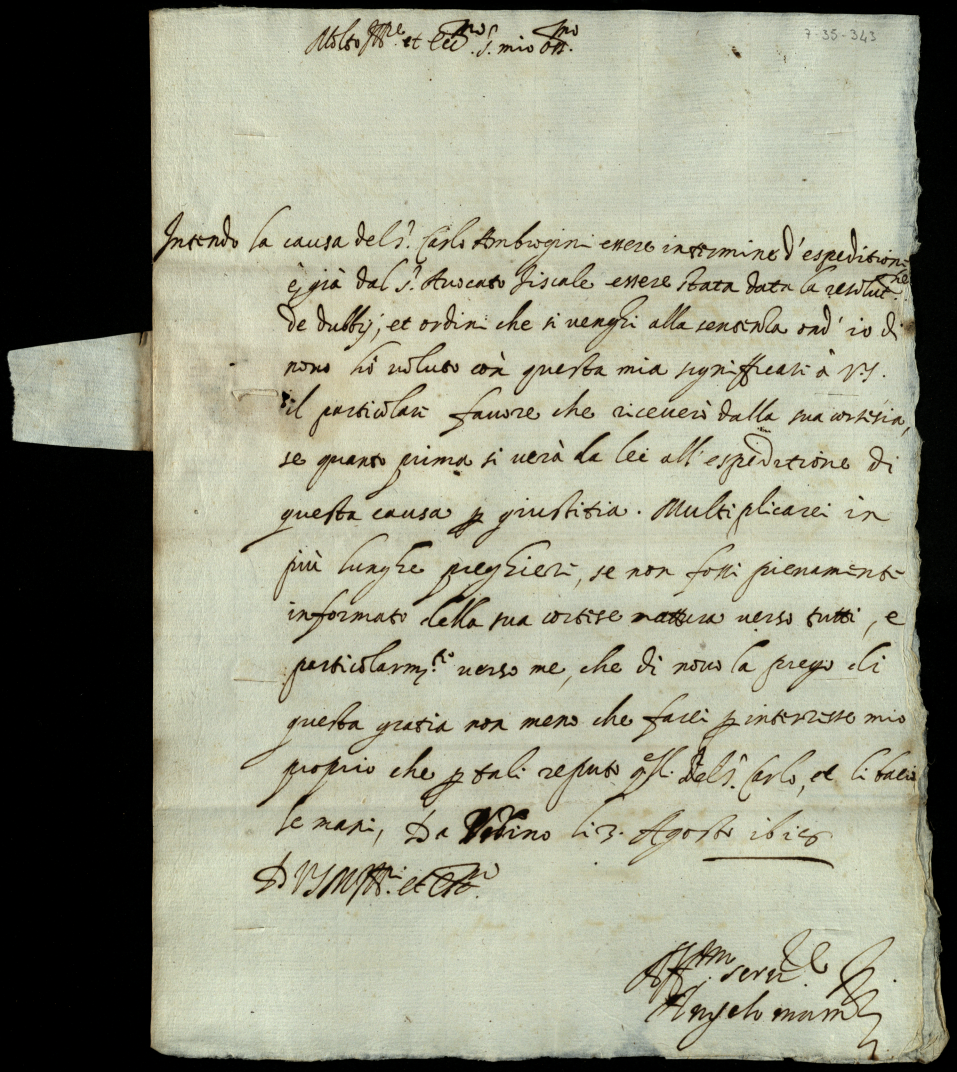 7-35-343
Molto Ill.re et Ecc.mo S. mio oss.mo
Intendo la causa del S.r Carlo Ambrogini essere in termine d'espeditione
è già dal S.r Avocato fiscale essere stata data la resolut.ne
de dubbij, et ordini che si venghi alla sentenza ond' io di
novo hò voluto con questa mia significarli à V.S.
il particolare favore che riceverò dalla sua cortesia,
se quanto prima si verà da lei all'espeditione di
questa causa p giustitia. Multiplicarei in
più lunghe preghiere, se non fossi pienamente
informato della sua cortese nattura verso tutti, e
particolarm.te verso me, che di novo la prego di
questa gratia non meno che facci p interesse mio
proprio che p tali reputo q.sti del S.r Carlo, et li bacio
le mani, Da Udino li 3. Agosto
D V S M Ill.re et Ecc.ma
Aff.mo ser.re
Angelo